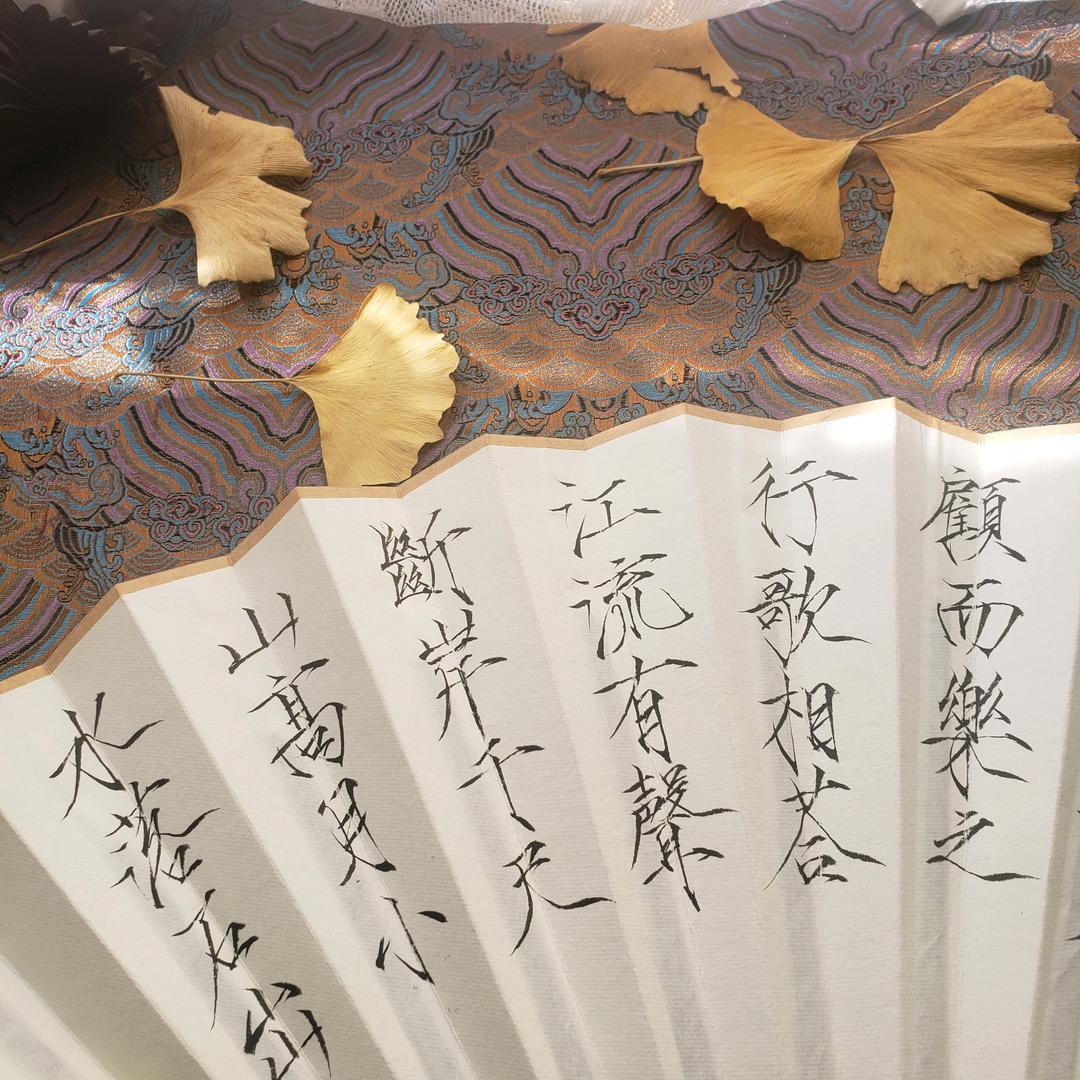 顧而樂之
行歌相荅
江流有聲
斷岸千尺
山高月小
水落石出